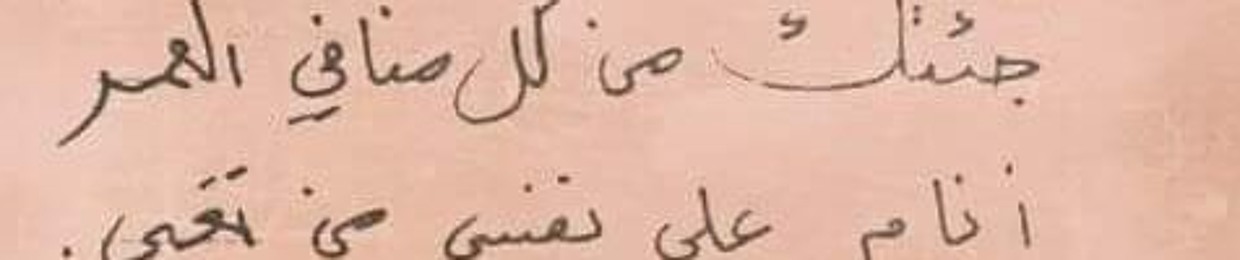 جئتك من كل منافي العمر
أنام على نفسي من تعبي.